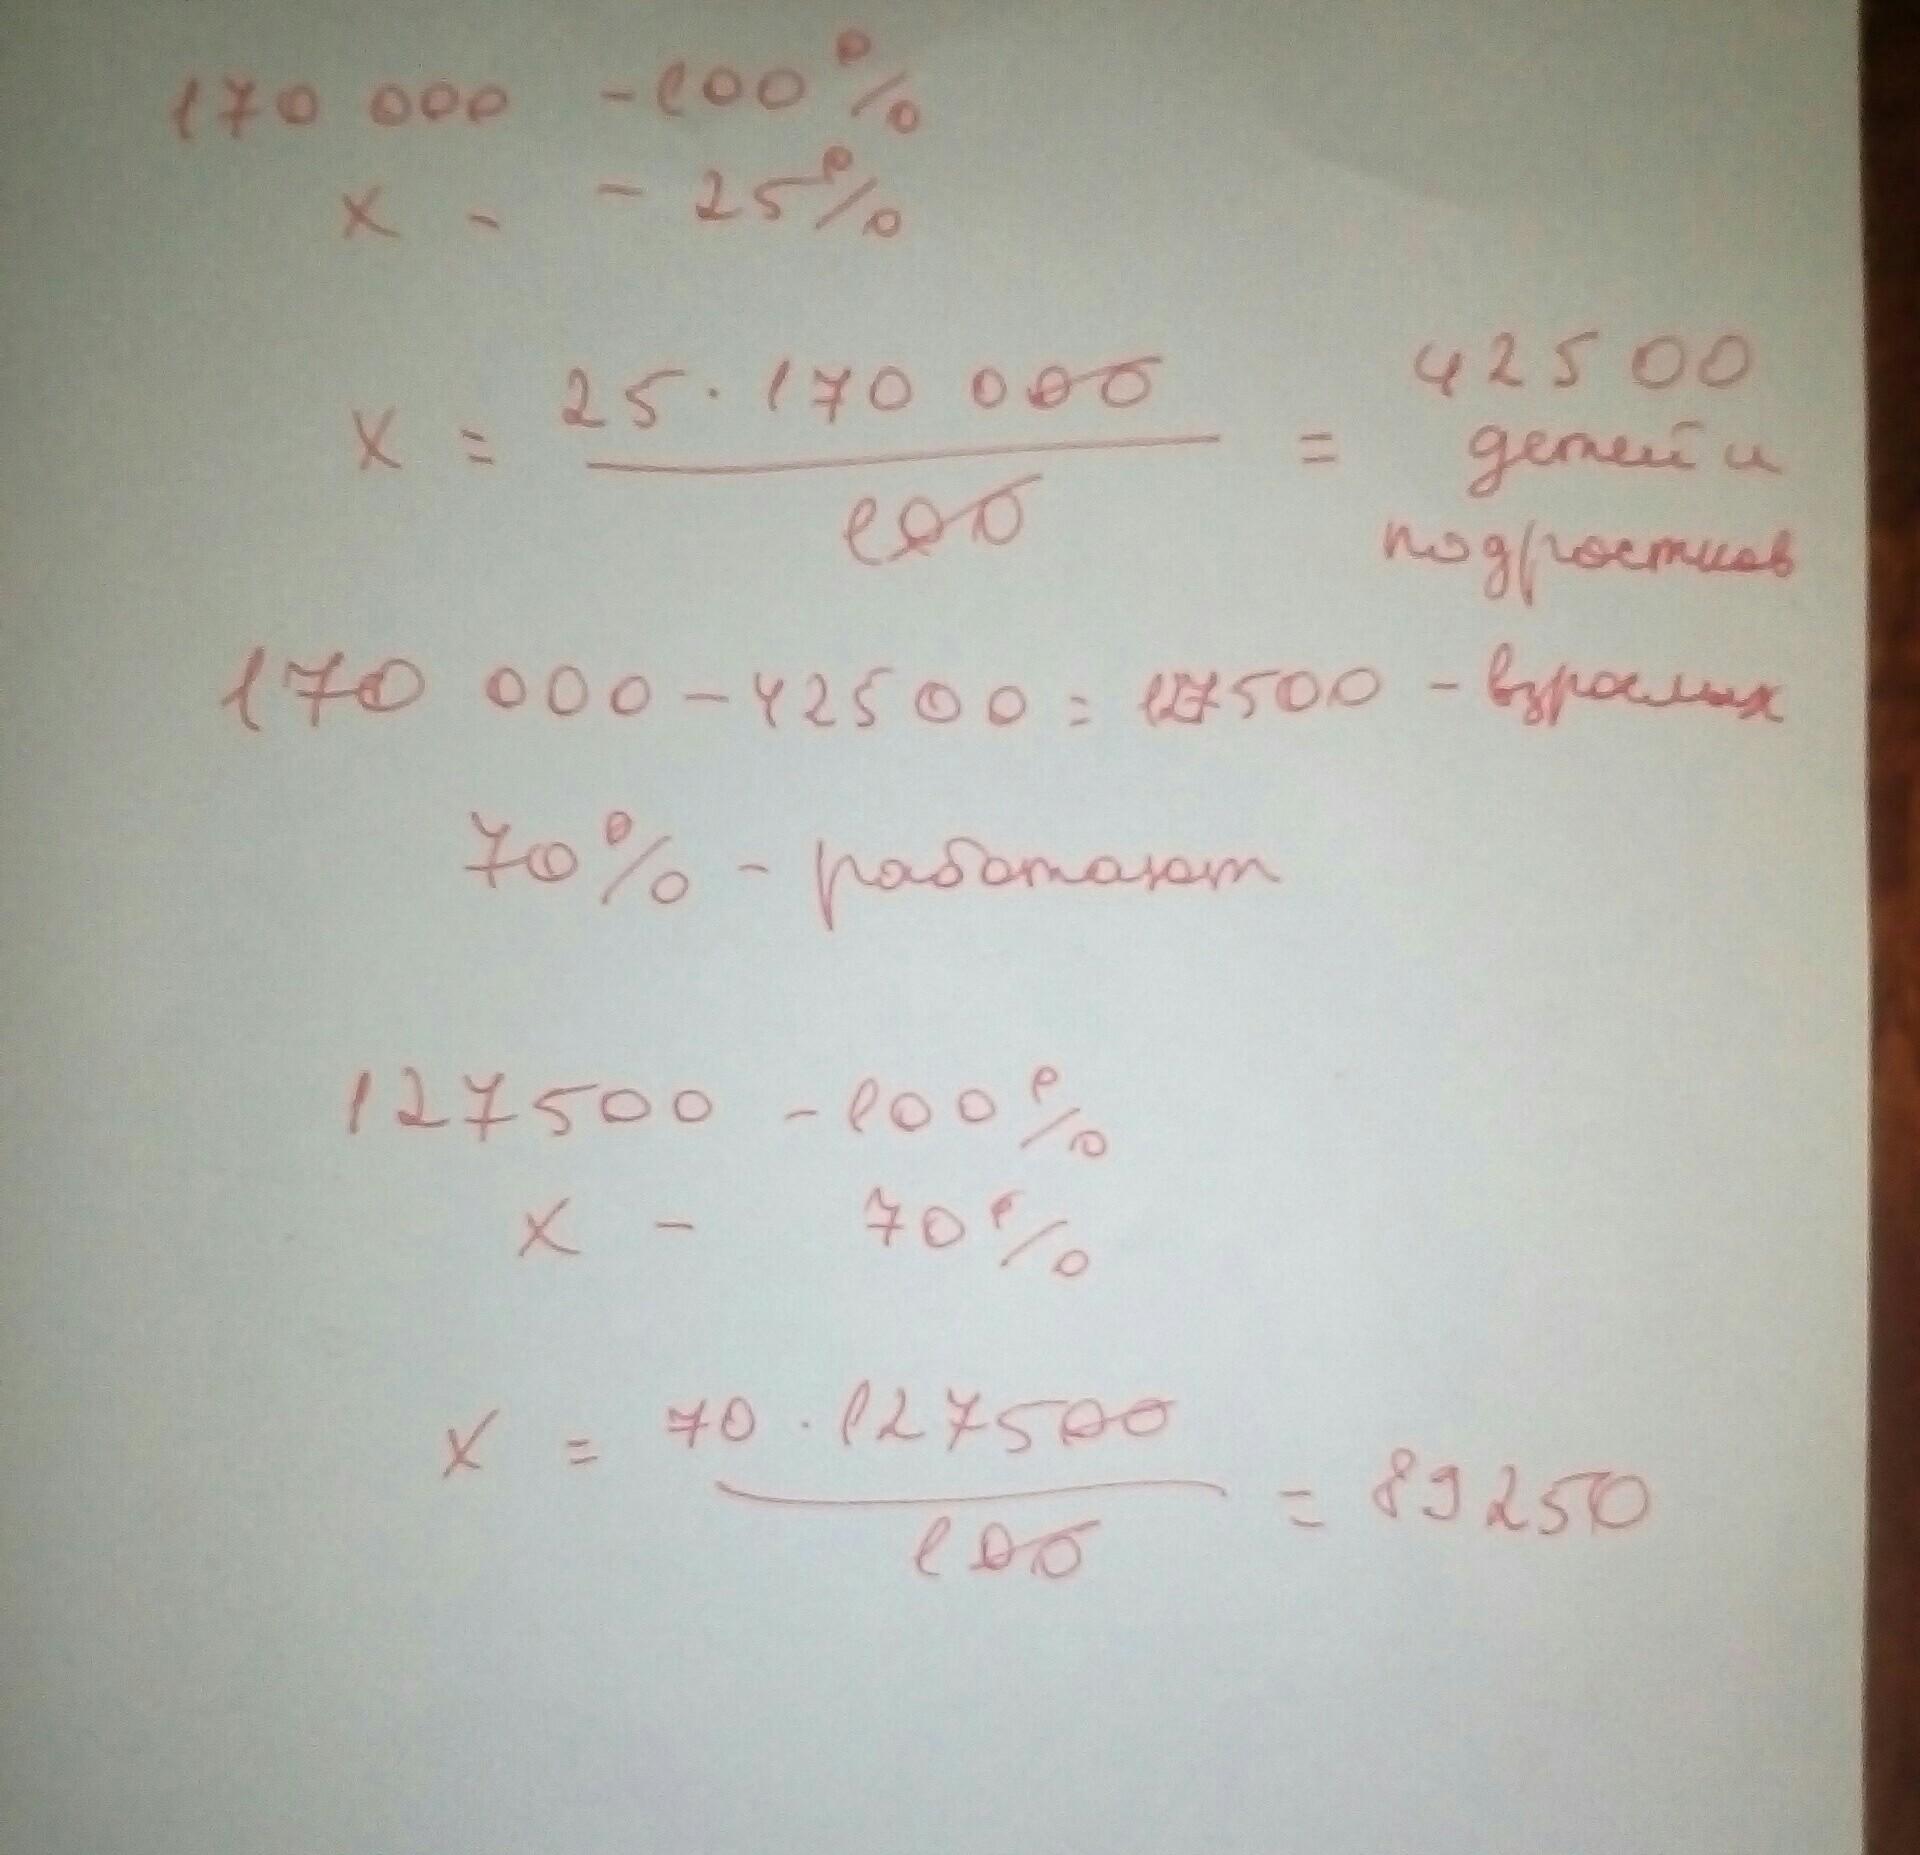 170 000 - 100%
x - - 25%
x = 25 · 170 000 / 100 = 42500
детей и
подростков
170 000 - 42500 = 127500 - взрослых
70% - работают
127500 - 100%
x - 70%
x = 70 · 127500 / 100 = 89250